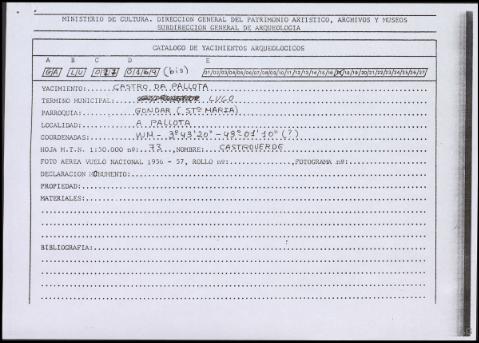 MINISTERIO DE CULTURA. DIRECCION GENERAL DEL PATRIMONIO ARTISTICO, ARCHIVOS Y MUSEOS
SUBDIRECCION GENERAL DE ARQUEOLOGIA
CATALOGO DE YACIMIENTOS ARQUEOLOGICOS
A B C D E
GA LU 027 0164 (bis) 01/02/03/04/05/06/07/08/09/10/11/12/13/14/15/16/ /18/19/20/21/22/23/24/25/26/27/
YACIMIENTO: CASTRO DA PALLOTA
TERMINO MUNICIPAL: LUGO
PARROQUIA: GONDAR (STª MARIA)
LOCALIDAD: A PALLOTA
COORDENADAS: WM- 3º43'20" - 43º01'10" (?)
HOJA M.T.N. 1:50.000 nº: 73 ,NOMBRE: CASTROVERDE
FOTO AEREA VUELO NACIONAL 1956 - 57, ROLLO nº: ,FOTOGRAMA nº:
DECLARACION MONUMENTO:
PROPIEDAD:
MATERIALES:
BIBLIOGRAFIA: